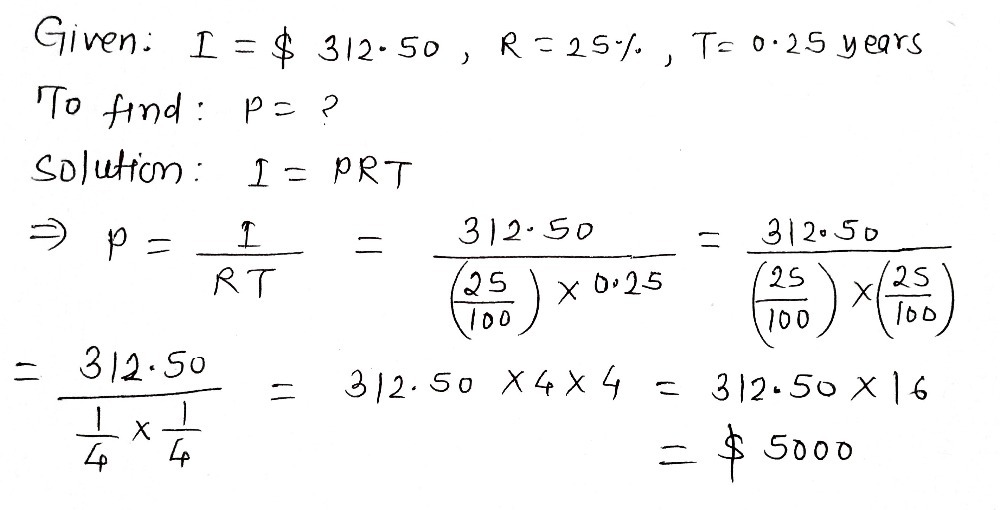 Given: I = $ 312.50 , R = 25% , T= 0.25 years
To find: P= ?
Solution: I = PRT
⇒ P = I/RT = 312.50/((25/100) × 0.25) = 312.50/((25/100) × (25/100))
= 312.50/(1/4 × 1/4) = 312.50 × 4 × 4 = 312.50 × 16
= $ 5000